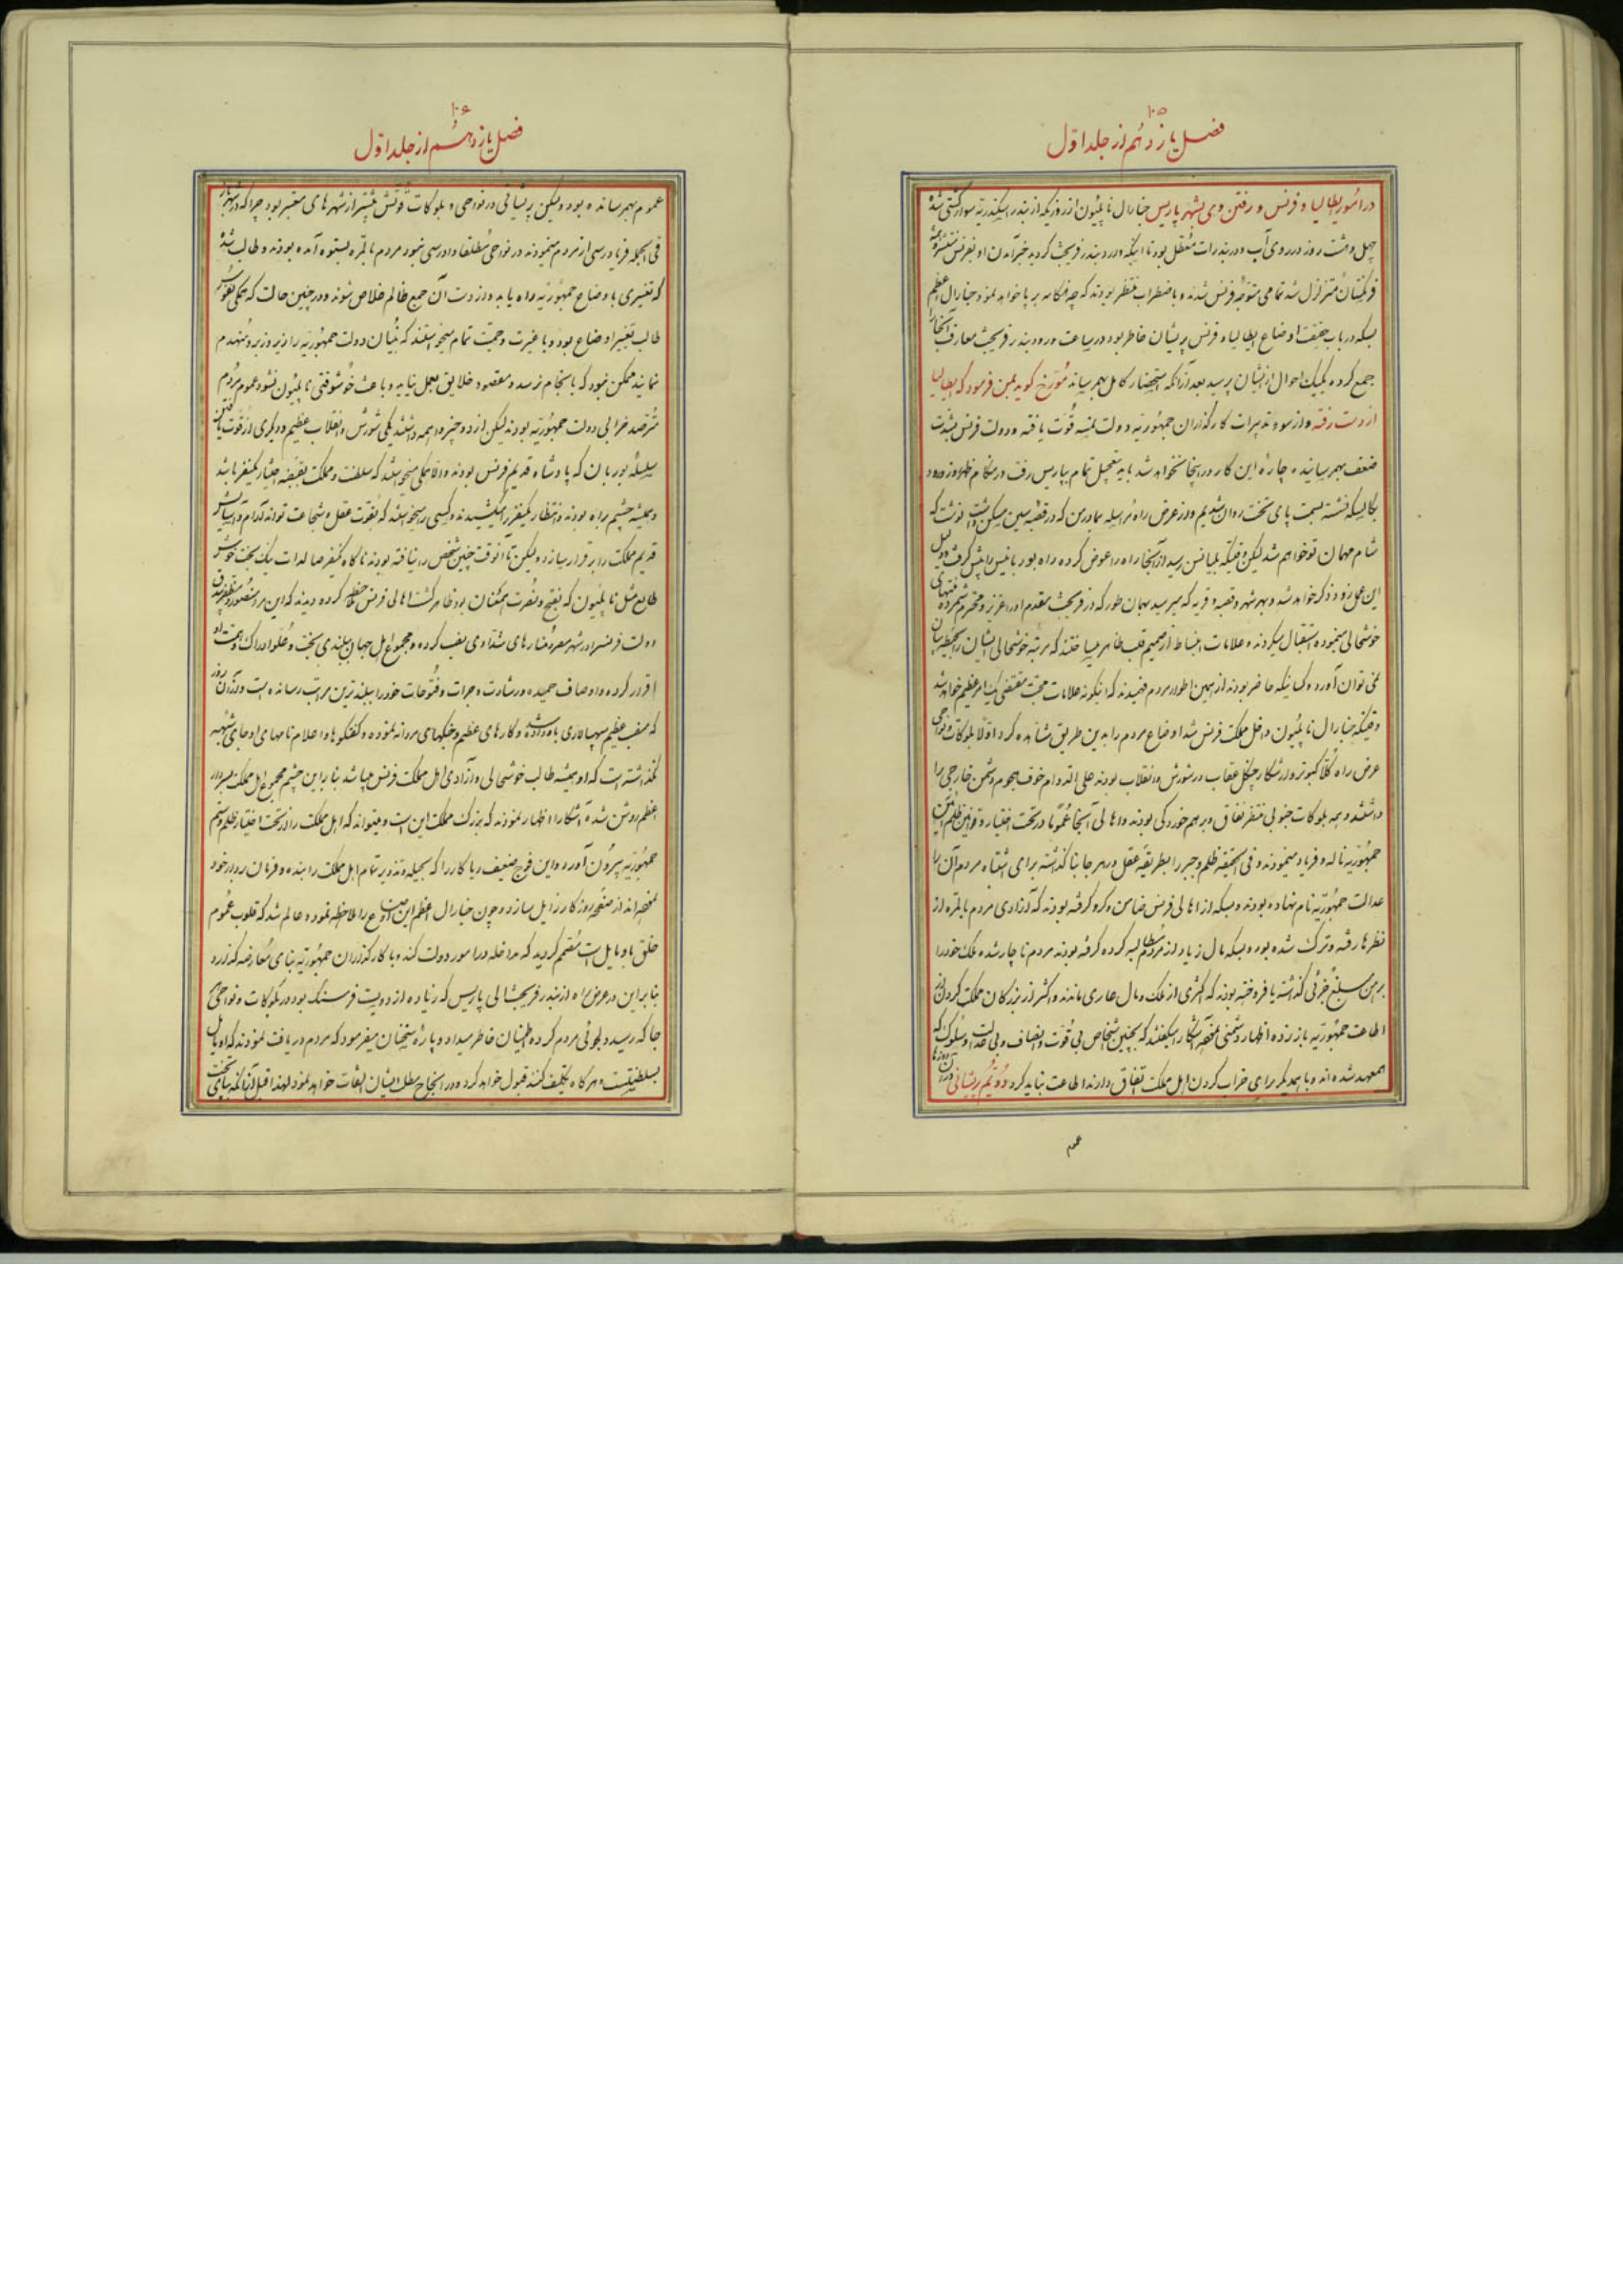 ۱۰۵
فصل یازدهم از جلد اول
در امور ایطالیا و فرنس و رفتن وی بشهر پاریس جنارال ناپلیون از روزیکه از بندر اسکندریه سوار کشتی شد
چهل و هشت روز در روی آب و در بندرات معطل بود تا اینکه وارد بندر فریجش گردید خبر آمدن او بفرنس منتشر و همه
فرنگستان متزلزل شد تمامی متوجه فرنس شدند و باضطراب منتظر بودند که چه هنگامه بر پا خواهد نمود جنارال اعظم
بسکه در باب حقیقت اوضاع ایطالیا و فرنس پریشان خاطر بود در ساعت ورود بندر فریجش معارف آنجا را
جمع کرده یکیک احوال از ایشان پرسید بعد از آنکه استحضار کامل بهم رسانید مورخ گوید بمن فرمود که ایطالیا
از دست رفته و از سوء تدبیرات کارگذاران جمهوریه دولت نمسه قوت یافته و دولت فرنس بشدت
ضعف بهم رسانیده چاره این کار در اینجا نخواهد شد باید بتعجیل تمام بپاریس رفت در هنگام ظهر از ورود
بکالسکه نشسته بسمت پای تخت روان شدیم و در عرض راه مراسله بمادر من که در قصبه سین مسکن داشت نوشت که
شام مهمان تو خواهم شد لیکن وقتیکه بلیانس رسید از آنجا راه را عوض کرده راه بوربانیس را پیش گرفت و دلیل
این عمل زود ذکر خواهد شد و بهر شهر و قصبه و قریه که میرسید بهمان طور که در فریجش مقدم او را عزیز و محترم شمرده منتهای
خوشحالی مینمودند استقبال میکردند و علامات انبساط از صمیم قلب ظاهر میساختند که مرتبه خوشحالی ایشان را بخط و بیان
نمی توان آورد و کسانیکه حاضر بودند از همین اطوار مردم فهمیدند که اینگونه علامات محبت مقتضی یک امر عظیم خواهد شد
وقتیکه جنارال ناپلیون داخل مملکت فرنس شد اوضاع مردم را بدین طریق مشاهده کرد اولا بلوکات و نواحی
عرض راه کلا کبوتر وار شکار چنگل عقاب در شورش و انقلاب بودند علی الدوام خوف هجوم دشمن خارجی را
داشتند و همه بلوکات جنوبی متفرق نفاق و بر هم خوردگی بودند و اهالی آنجا عموما در تحت اختیار و قوانین ظلم آئین
جمهوریه ناله و فریاد مینمودند و فی الحقیقه ظلم و جبر را بطریقه عقل در هر جا بنا گذاشته برای اشتباه مردم آن را
عدالت جمهوریه نام نهاده بودند و بسکه از اهالی فرنس ضامن و گرو گرفته بودند که آزادی مردم بالمره از
نظرها رفته و ترک شده بود و بسکه مال زیاد از مردم مطالبه کرده گرفته بودند مردم ناچار شده ملک خود را
برهن مبلغ جزئی گذاشته یا فروخته بودند که اکثری از ملک و مال عاری ماندند و اکثر از بزرگان مملکت گردن از
اطاعت جمهوریه باز زده و اظهار دشمنی نموده آشکارا میگفتند که بچنین اشخاص بی قوت و انصاف و بی عدالت و سلوک که
همعهد شده اند و با همدیگر برای خراب کردن اهل مملکت اتفاق دارند اطاعت نباید کرد دویم پریشانی در آن روزها
عموم
۱۰۶
فصل یازدهم از جلد اول
عموم بهم رسانده بود ولیکن پریشانی در نواحی و بلوکات قوتش بیشتر از شهرهای معتبر بود چرا که در شهرها باز
فی الجمله فریادرسی از مردم مینمودند در نواحی مطلقا دادرسی نبود مردم بالمره بستوه آمده بودند و طالب شدند
که تغییری باوضاع جمهوریه راه یابد و از دست آن جمع ظالم خلاص شوند و در چنین حالت که همگی بقوت
طالب تغییر اوضاع بود و با غیرت و حمیت تمام میخواستند که بنیان دولت جمهوریه را زیر و زبر و منهدم
نمایند ممکن نبود که بانجام نرسد و مقصود خلایق بعمل نیاید و باعث خوشوقتی ناپلیون نشود عموم مردم
مترصد خرابی دولت جمهوریه بودند لیکن از دو چیز واهمه داشتند یکی شورش و انقلاب عظیم و دیگری از قوت یافتن
سلسله بوربان که پادشاه قدیم فرنس بودند والا همگی میخواستند که سلطنت و مملکت بقبضه اختیار یکنفر باشد
و همیشه چشم براه بودند و انتظار یکنفر را میکشیدند و کسی را میخواستند که بقوت عقل و شجاعت تواند آرام و آسایش
قدیم مملکت را برقرار سازد ولیکن تا آنوقت چنین شخص را نیافته بودند ناگاه یکنفر صاحب ذات نیک بخت خوش
طالع مثل ناپلیون که بفتح و نصرت امتنان بود ظاهر گشت اهالی فرنس ملاحظه کرده دیدند که این مرد منصور و مظفر بیرق
دولت فرنس را در شهر مصر و منارهای شدادی نصب کرده و مجموع اهل جهان ببلندی بخت و علو ادراک و همت او
اقرار کرده و اوصاف حمیده و رشادت و جرات و فتوحات خود را ببلندترین مراتب رسانده است و از آن روز
که منصب عظیم سپهسالاری باو داده شد و کارهای عظیم و جنگهای مردانه نموده و گفتگوها و اعلام نامهای او جای شبهه
نگذاشته است که او همیشه طالب خوشحالی و آزادی اهل مملکت فرنس میباشد بنا براین چشم مجموع اهل مملکت بسردار
اعظم روشن شده آشکارا اظهار نمودند که بزرگ مملکت این است و میتواند که اهل مملکت را از تحت اختیار ظلم و ستم
جمهوریه بیرون آورد و این فوج ضعیف و ریاکار را که بحیله و تزویر تمام اهل مملکت را بنده و فرمان بردار خود
نموده اند از صفحه روزگار زایل سازد و چون جنارال اعظم این اوضاع را ملاحظه نموده عالم شد که قلوب عموم
خلق باو مایل است مصمم گردید که مداخله در امور دولت کند و با کارگذاران جمهوریه بنای معارضه گذارد
بنا براین در عرض راه از بندر فریجش الی پاریس که زیاده از دویست فرسنگ بود در بلوکات و نواحی هر
جا که رسید دلجوئی مردم کرده اطمینان خاطر میداد و پاره سخنان میفرمود که مردم دریافت نمودند که او مایل
بسلطنت است و هرگاه تکلیف کنند قبول خواهد کرد و در انجاح مطلب ایشان التفات خواهد نمود لهذا قبل از آنکه بپای تخت